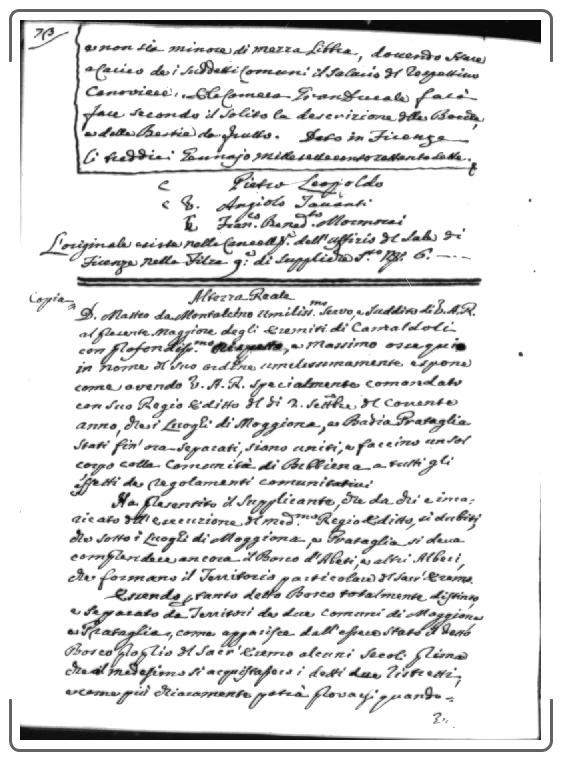 713
e non sia minore di mezza Libbra, dovendo stare
a Carico de i suddetti Comuni il Salario del respettivo
Canoviere. La Camera Granducale farà
fare secondo il solito la descrizione delle Bocche,
e delle Bestie da frutto. Dato in Firenze
li tredici Gennajo mille settecento settanta sette.
Pietro Leopoldo
V. Angiolo Tavanti
Fran.co Bened.to Mormorai
L'originale esiste nella Cancell.a dell'uffizio del Sale di
Firenze nella Filza 9.a di Suppliche S.to N.o 6.
Copia
Altezza Reale
D. Matteo da Montalcino umiliss.mo servo, e suddito di V. A. R.
al presente Maggiore degli Eremiti di Camaldoli
con profondiss.mo rispetto, e massimo ossequio
in nome del suo ordine umilissimamente espone
come avendo V. A. R. specialmente comandato
con suo Regio Editto del dì 2. Settbre del corrente
anno, che i Luoghi di Moggiona, e Badia Prataglia
stati fin'ora separati, siano uniti, e faccino un sol
corpo colla Comunità di Bibbiena a tutti gli
effetti de regolamenti comunitativi
Ha presentito il supplicante, che da chi è inca-
ricato dell'esecuzione del med.mo Regio Editto, si dubiti,
che sotto i Luoghi di Moggiona, e Prataglia si deva
comprendere ancora il Bosco d'Abeti, e altri Alberi,
che formano il Territorio particolare del Sacr'Eremo.
Essendo, tanto detto Bosco totalmente distinto,
e separato da Territori de due Comuni di Moggiona
e Prataglia, come apparisce dall'essere stato il detto
Bosco proprio del Sacr'Eremo alcuni secoli prima
che il medesimo si acquistasse i detti due Distretti,
e come più chiaramente potrà provarsi quando-